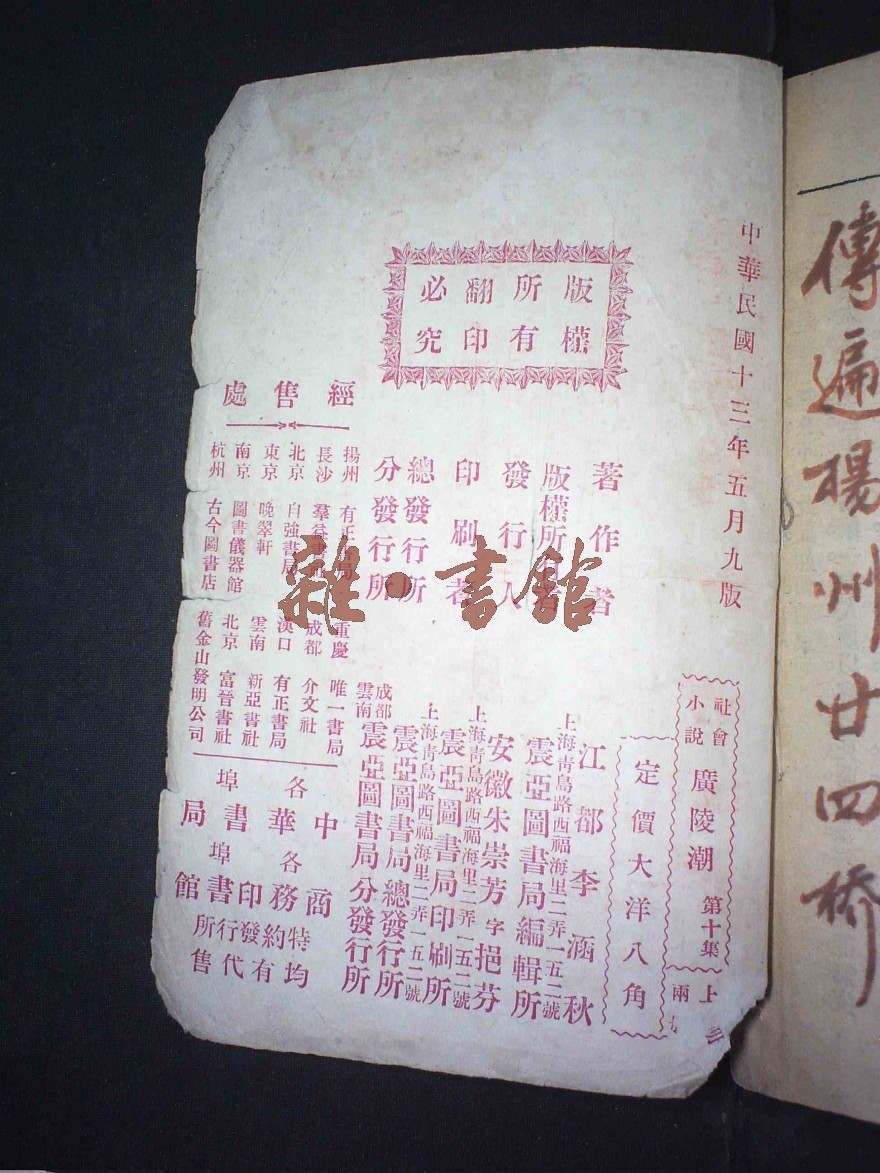 傳遍楊州廿四橋
中華民國十三年五月九版
版權
所有
翻印
必究
社會
小說
廣陵潮
第十集
上
兩
定價大洋八角
著作者
江都李涵秋
版權所有者
上海靑島路西福海里二弄一五二號
震亞圖書局編輯所
發行人
安徽朱崇芳字挹芬
印刷者
上海靑島路西福海里二弄一五二號
震亞圖書局印刷所
總發行所
上海靑島路西福海里二弄一五二號
震亞圖書局總發行所
分發行所
成都
雲南
震亞圖書局分發行所
經售處
揚州 有正書局
長沙 羣益
北京 自強書局
東京 晚翠軒
南京 圖書儀器館
杭州 古今圖書店
重慶 唯一書局
成都 介文社
漢口 有正書局
雲南 新亞書社
北京 富晉書社
舊金山發明公司
中華書局
商務印書館
各埠
各埠
特約發行所
均有代售
雜·書館